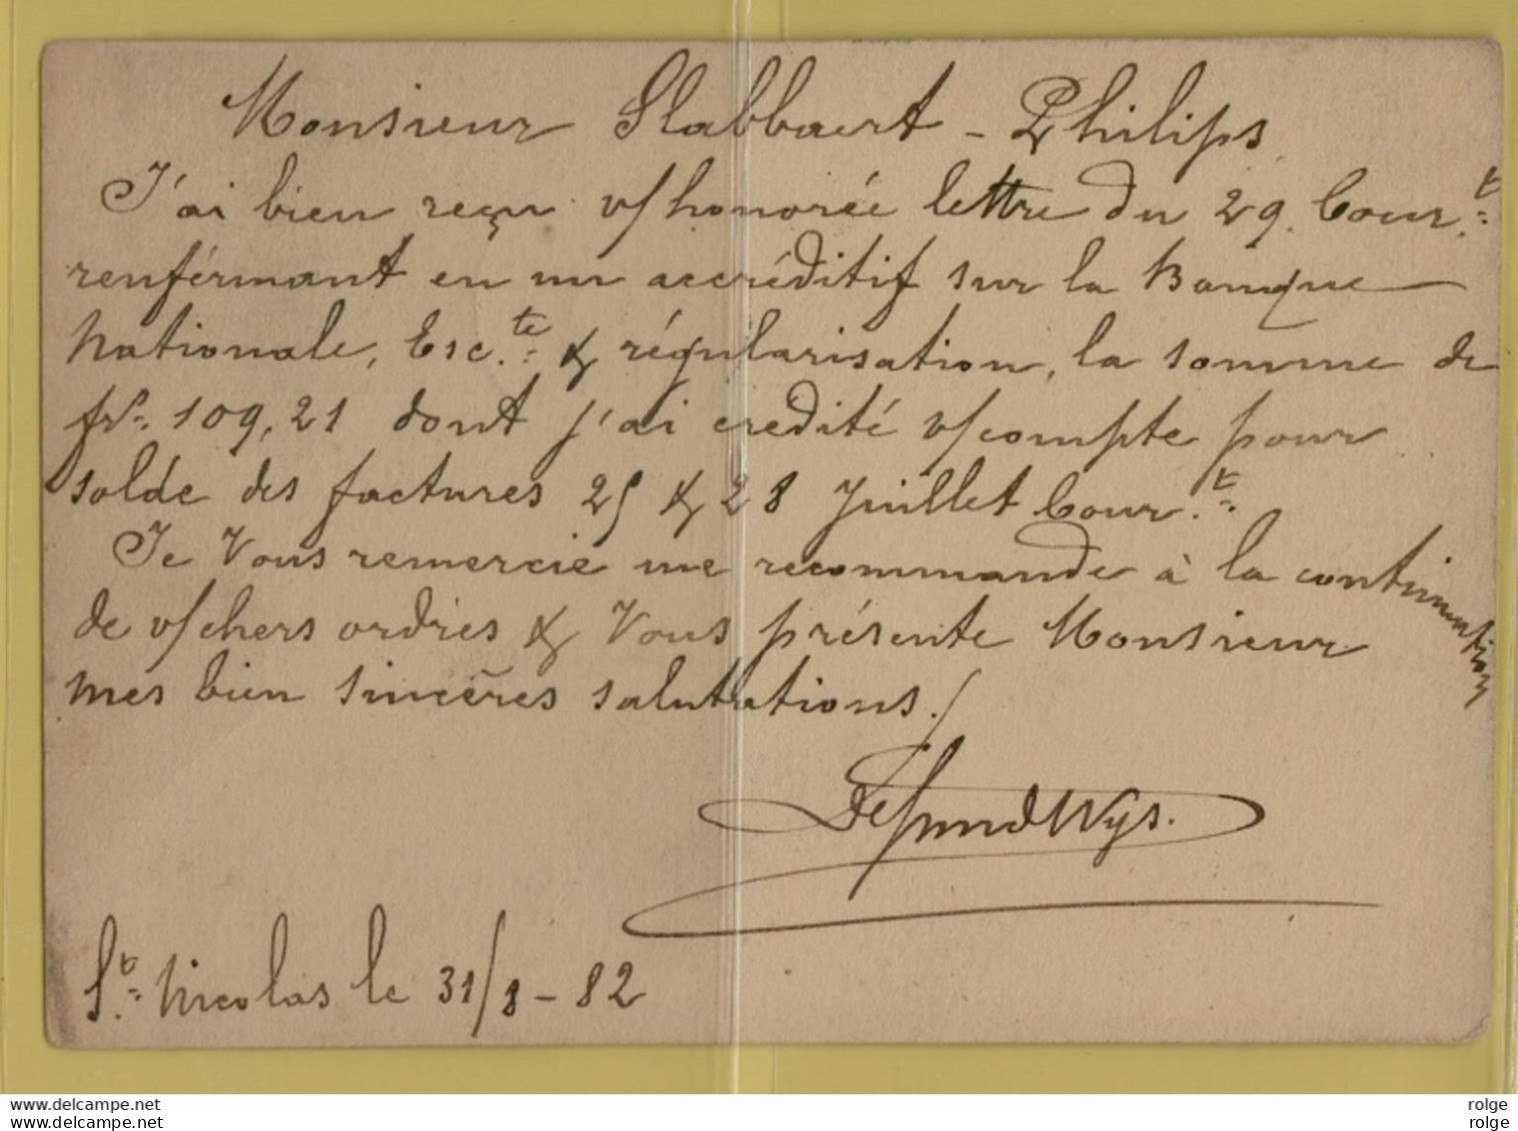 Monsieur Slabbaert - Philips
J'ai bien reçu v/honorée lettre du 29. Cour.t
renférmant en un accréditif sur la Banque
Nationale, Esc.te & régularisation, la somme de
frs. 109,21 dont j'ai credité v/compte pour
solde des factures 25 & 28 Juillet Cour.t
Je Vous remercie me recommande à la continuation
de v/chers ordres & Vous présente Monsieur
mes bien sincères salutations.
St. Nicolas le 31/8-82
www.delcampe.net rolge
www.delcampe.net rolge